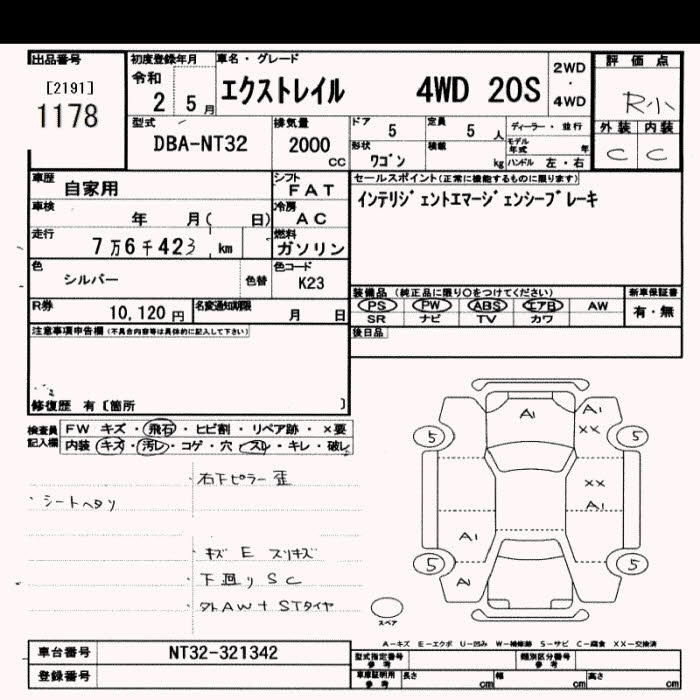 出品番号 初度登録年月 車名・グレード 評価点
[2191] 令和 2WD
1178 2 5月 エクストレイル 4WD 20S ・ R小
4WD
型式 排気量 ドア 5 定員 5人 ディーラー・並行 外装 内装
DBA-NT32 2000 cc 形状 ワゴン 積載 kg モデル年式 年 C C
ハンドル 左・右
車歴 自家用 シフト FAT セールスポイント(正常に機能するものに限ります)
車検 年 月( 日) 冷房 AC インテリジェントエマージェンシーブレーキ
走行 7万6千423 km 燃料 ガソリン
色 シルバー 色替 色コード K23
装備品 (純正品に限り○をつけてください) 新車保証書
R券 10,120円 名変通知期限 月 日 PS PW ABS エアB AW 有・無
SR ナビ TV カワ
注意事項申告欄(不具合内容等は具体的に記入して下さい) 後日品
修復歴 有〔箇所 〕
検査員記入欄 FW キズ・飛石・ヒビ割・リペア跡・×要
内装 キズ・汚レ・コゲ・穴・スレ・キレ・破レ
A1 A1
XX
5 5
・右下ピラー歪
・シートヘタリ XX
A1
A1
・キズ E スリキズ
5 5
・下回りSC A1
・外AW+STタイヤ
スペア
A-キズ E-エクボ U-凹み W-補修跡 S-サビ C-腐食 XX-交換済
車台番号 NT32-321342 型式指定番号 参考 類別区分番号 参考
登録番号 車庫証明用 参考 長さ cm 幅 cm 高さ cm